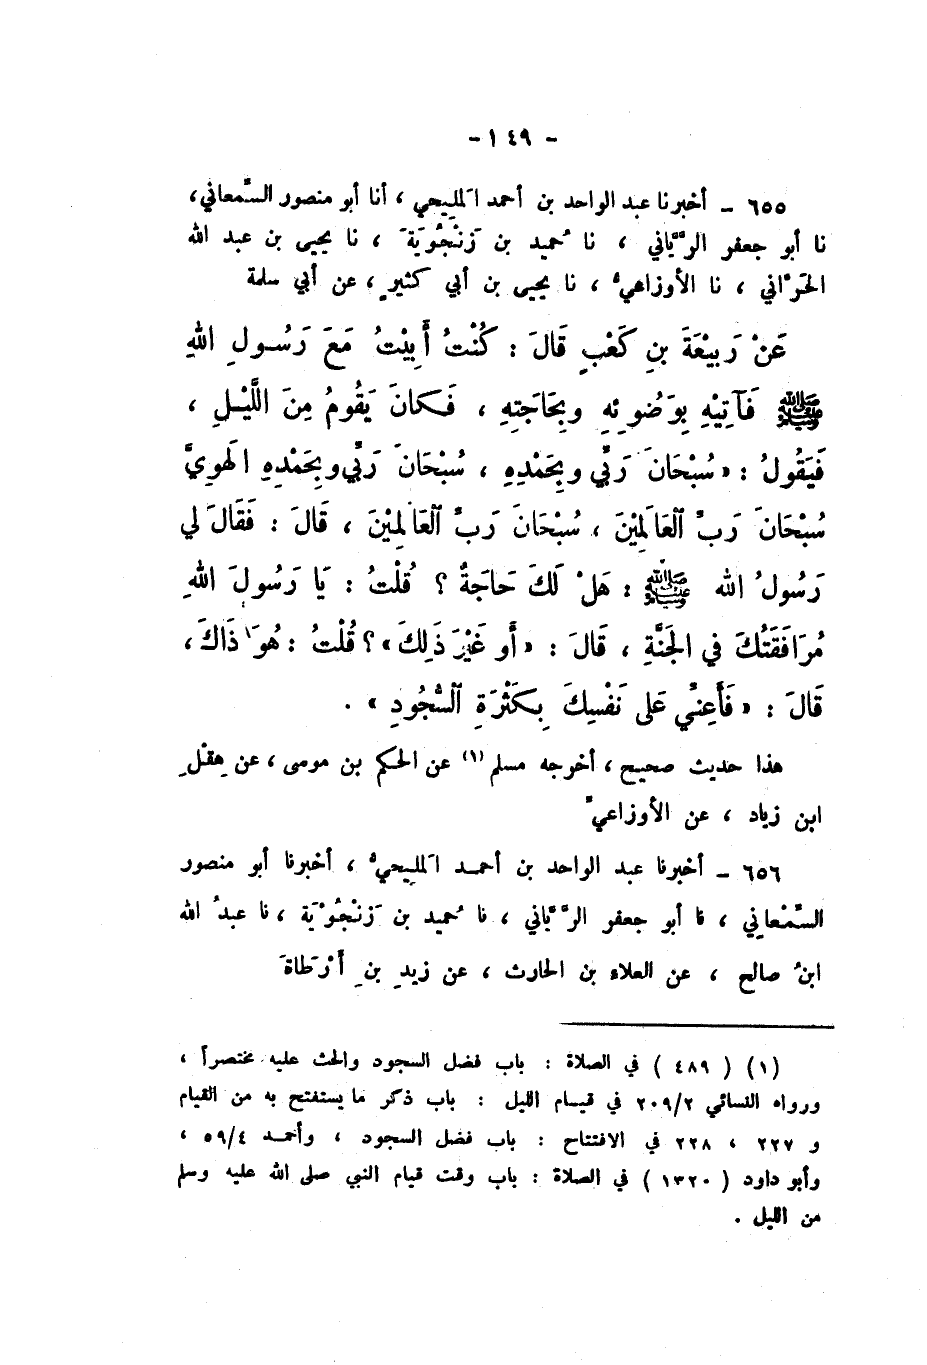 - ١٤٩ -
٦٥٥ - أخبرنا عبد الواحد بن أحمد المَليحي ، أنا أبو منصور السَّمعاني ،
نا أبو جعفر الرَّيَّاني ، نا حُميد بن زَنْجُويَةَ ، نا يحيى بن عبد الله
الحَرَّاني ، نا الأوزاعيُّ ، نا يحيى بن أبي كثيرٍ ، عن أبي سلمة
عَنْ رَبِيْعَةَ بنِ كَعْبٍ قَالَ : كُنْتُ أَبِيْتُ مَعَ رَسُولِ اللهِ
ﷺ فَآتِيْهِ بِوَضُوئِهِ وبِحَاجَتِهِ ، فَكانَ يَقُومُ مِنَ اللَّيْلِ ،
فَيَقُولُ : « سُبْحَانَ رَبِّي وبِحَمْدِهِ ، سُبْحَانَ رَبِّي وبِحَمْدِهِ الهَوِيَّ
سُبْحَانَ رَبِّ ٱلْعَالَمِيْنَ ، سُبْحَانَ رَبِّ ٱلْعَالَمِيْنَ ، قَالَ : فَقَالَ لي
رَسُولُ الله ﷺ : هَلْ لَكَ حَاجَةٌ ؟ قُلْتُ : يَا رَسُولَ اللهِ
مُرَافَقَتُكَ في الجَنَّةِ ، قَالَ : « أَو غَيْرَ ذَلِكَ » ؟ قُلْتُ : هُوَ ذَاكَ ،
قَالَ : « فَأَعِنِّي عَلى نَفْسِكَ بِكَثْرَةِ ٱلسُّجُودِ » .
هذا حديث صحيح ، أخرجه مسلم (١) عن الحكم بن موسى ، عن هِقْلِ
ابن زياد ، عن الأوزاعيِّ
٦٥٦ - أخبرنا عبد الواحد بن أحمد المَليحيُّ ، أخبرنا أبو منصور
السَّمْعاني ، نا أبو جعفر الرَّيَّاني ، نا حُميد بن زَنْجُوْيَة ، نا عبدُ الله
ابنُ صالح ، عن العلاء بن الحارث ، عن زيدِ بنِ أَرْطَاةَ
(١) ( ٤٨٩ ) في الصلاة : باب فضل السجود والحث عليه مختصراً ،
ورواه النسائي ٢٠٩/٢ في قيام الليل : باب ذكر ما يستفتح به من القيام
و ٢٢٧ ، ٢٢٨ في الافتتاح : باب فضل السجود ، وأحمد ٥٩/٤ ،
وأبو داود ( ١٣٢٠ ) في الصلاة : باب وقت قيام النبي صلى الله عليه وسلم
من الليل .